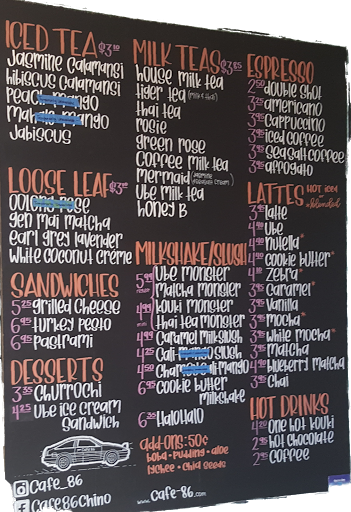 ICED TEA $3.10
Jasmine Calamansi
hibiscus Calamansi
Jabiscus
LOOSE LEAF $3
gen mai matcha
earl grey lavender
white coconut creme
SANDWICHES
5.25 grilled cheese
6.95 turkey pesto
6.95 pastrami
DESSERTS
3.35 Churrochi
4.25 Ube ice cream
Sandwich
Cafe_86
Cafe86Chino
MILK TEAS $3.85
house milk tea
tiger tea (milk & thai)
thai tea
rosie
green rose
Coffee milk tea
mermaid
Ube milk tea
honey B
MILKSHAKE/SLUSH
5.99 Ube monster
matcha monster
4.99 Kouki monster
thai tea monster
4.99 Caramel milkslush
4.25 Cali Slush
4.50
6.95 cookie butter
milkshake
6.50 Halohalo
add-ons: 50¢
boba • pudding • aloe
lychee • chia seeds
www.Cafe-86.com
ESPRESSO
2.50 double shot
3.25 americano
3.95 Cappuccino
3.95 iced coffee
3.95 Seasalt coffee
3.95 affogato
LATTES HOT iced
+blended
3.95 latte
4.50 Ube
4.50 nutella*
4.50 cookie butter*
4.50 zebra*
3.95 caramel*
3.95 vanilla
3.95 mocha*
3.95 white mocha*
3.95 matcha
4.50 blueberry matcha
3.95 Chai
HOT DRINKS
4.20 one hot kouki
2.95 hot chocolate
2.95 coffee